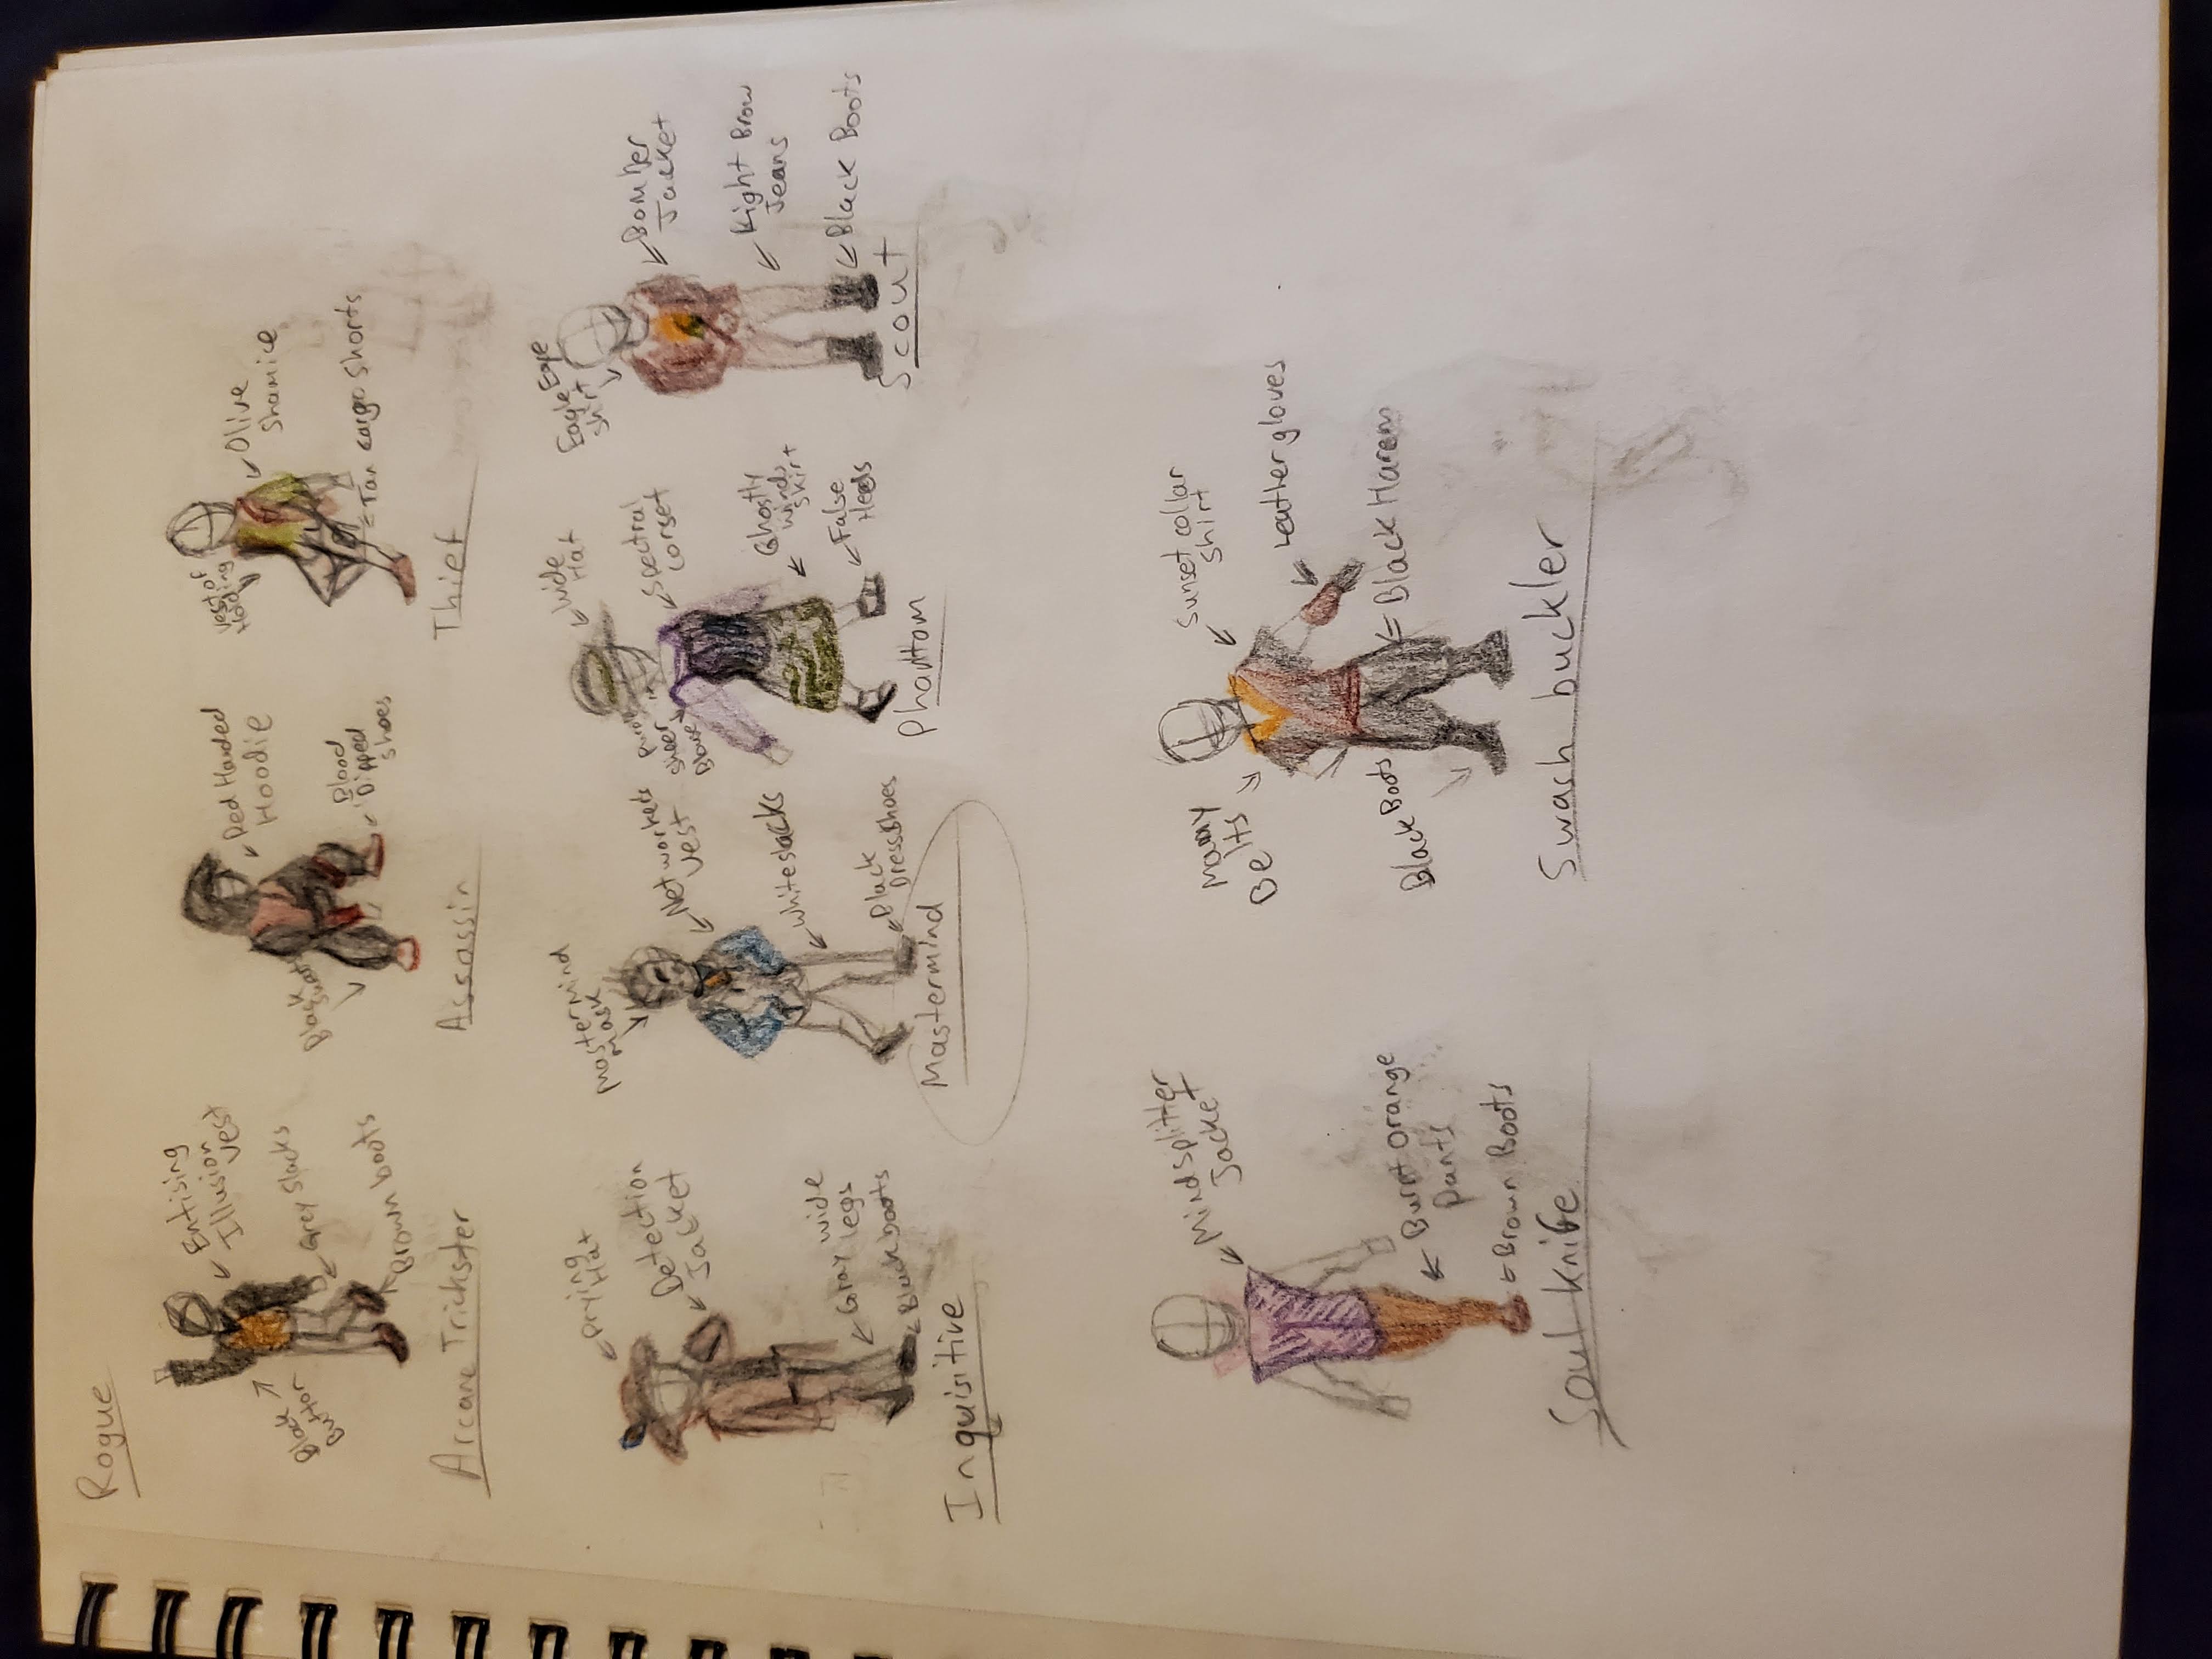 Rogue
Entising
Illusion
Vest
Black
Button
Grey Slacks
Brown boots
Arcane Trickster
Red Handed
Hoodie
Black
Sweats
Blood
Dipped
Shoes
Assassin
Vest of
Holding
Olive
Shamice
Tan cargo Shorts
Thief
Prying
Hat
Detection
Jacket
Gray wide
legs
Black boots
Inquisitive
Mastermind
Mask
Networkers
Vest
White slacks
Black
Dress Shoes
Mastermind
Wide
Hat
Purple
Sheer
Blouse
Spectral
Corset
Ghostly
Winds
Skirt
False
Heels
Phantom
Eagle Eye
Shirt
Bomber
Jacket
Brow
Jeans
Black Boots
Scout
Mindsplitter
Jacket
Burnt Orange
Pants
Brown Boots
Soul knife
Many
Belts
Sunset collar
Shirt
Leather gloves
Black Boots
Black Harem
Swash buckler